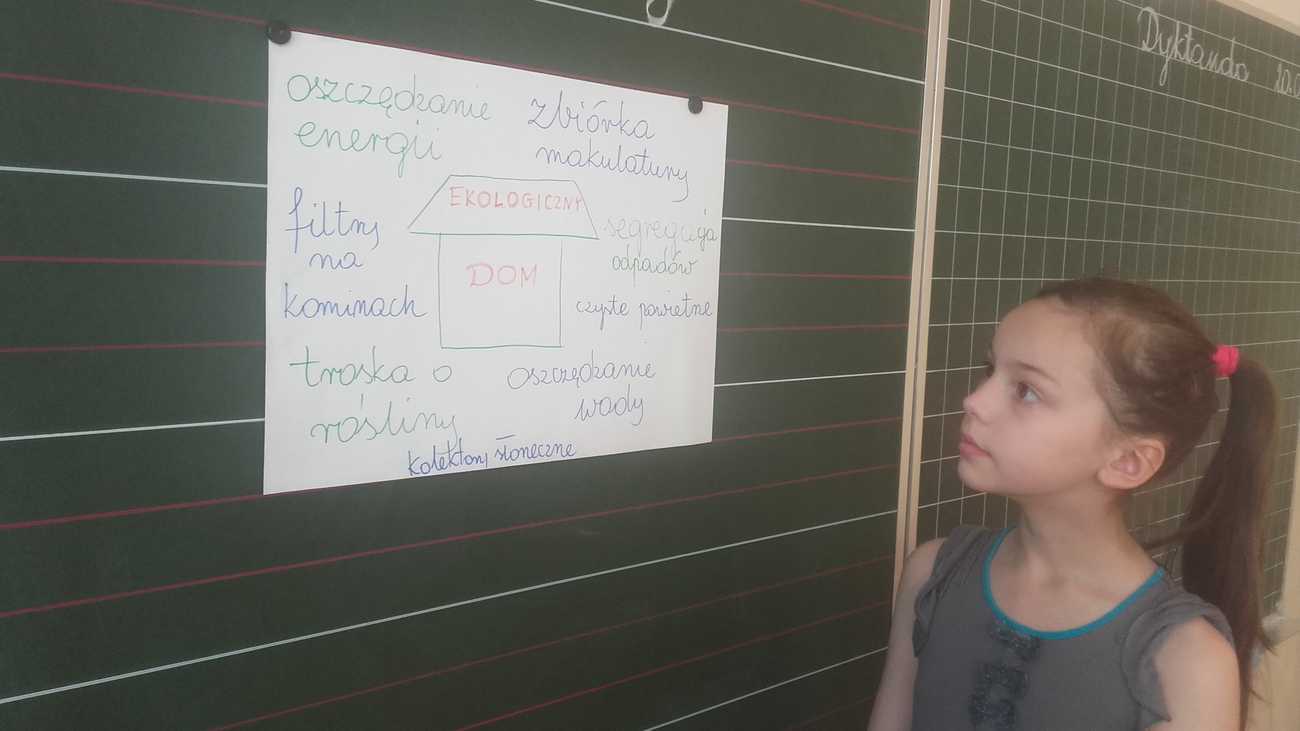 oszczędzanie
energii
zbiórka
makulatury
EKOLOGICZNY
DOM
filtry
na
kominach
segregacja
odpadów
czyste powietrze
troska o
rośliny
oszczędzanie
wody
kolektory słoneczne
Dyktando